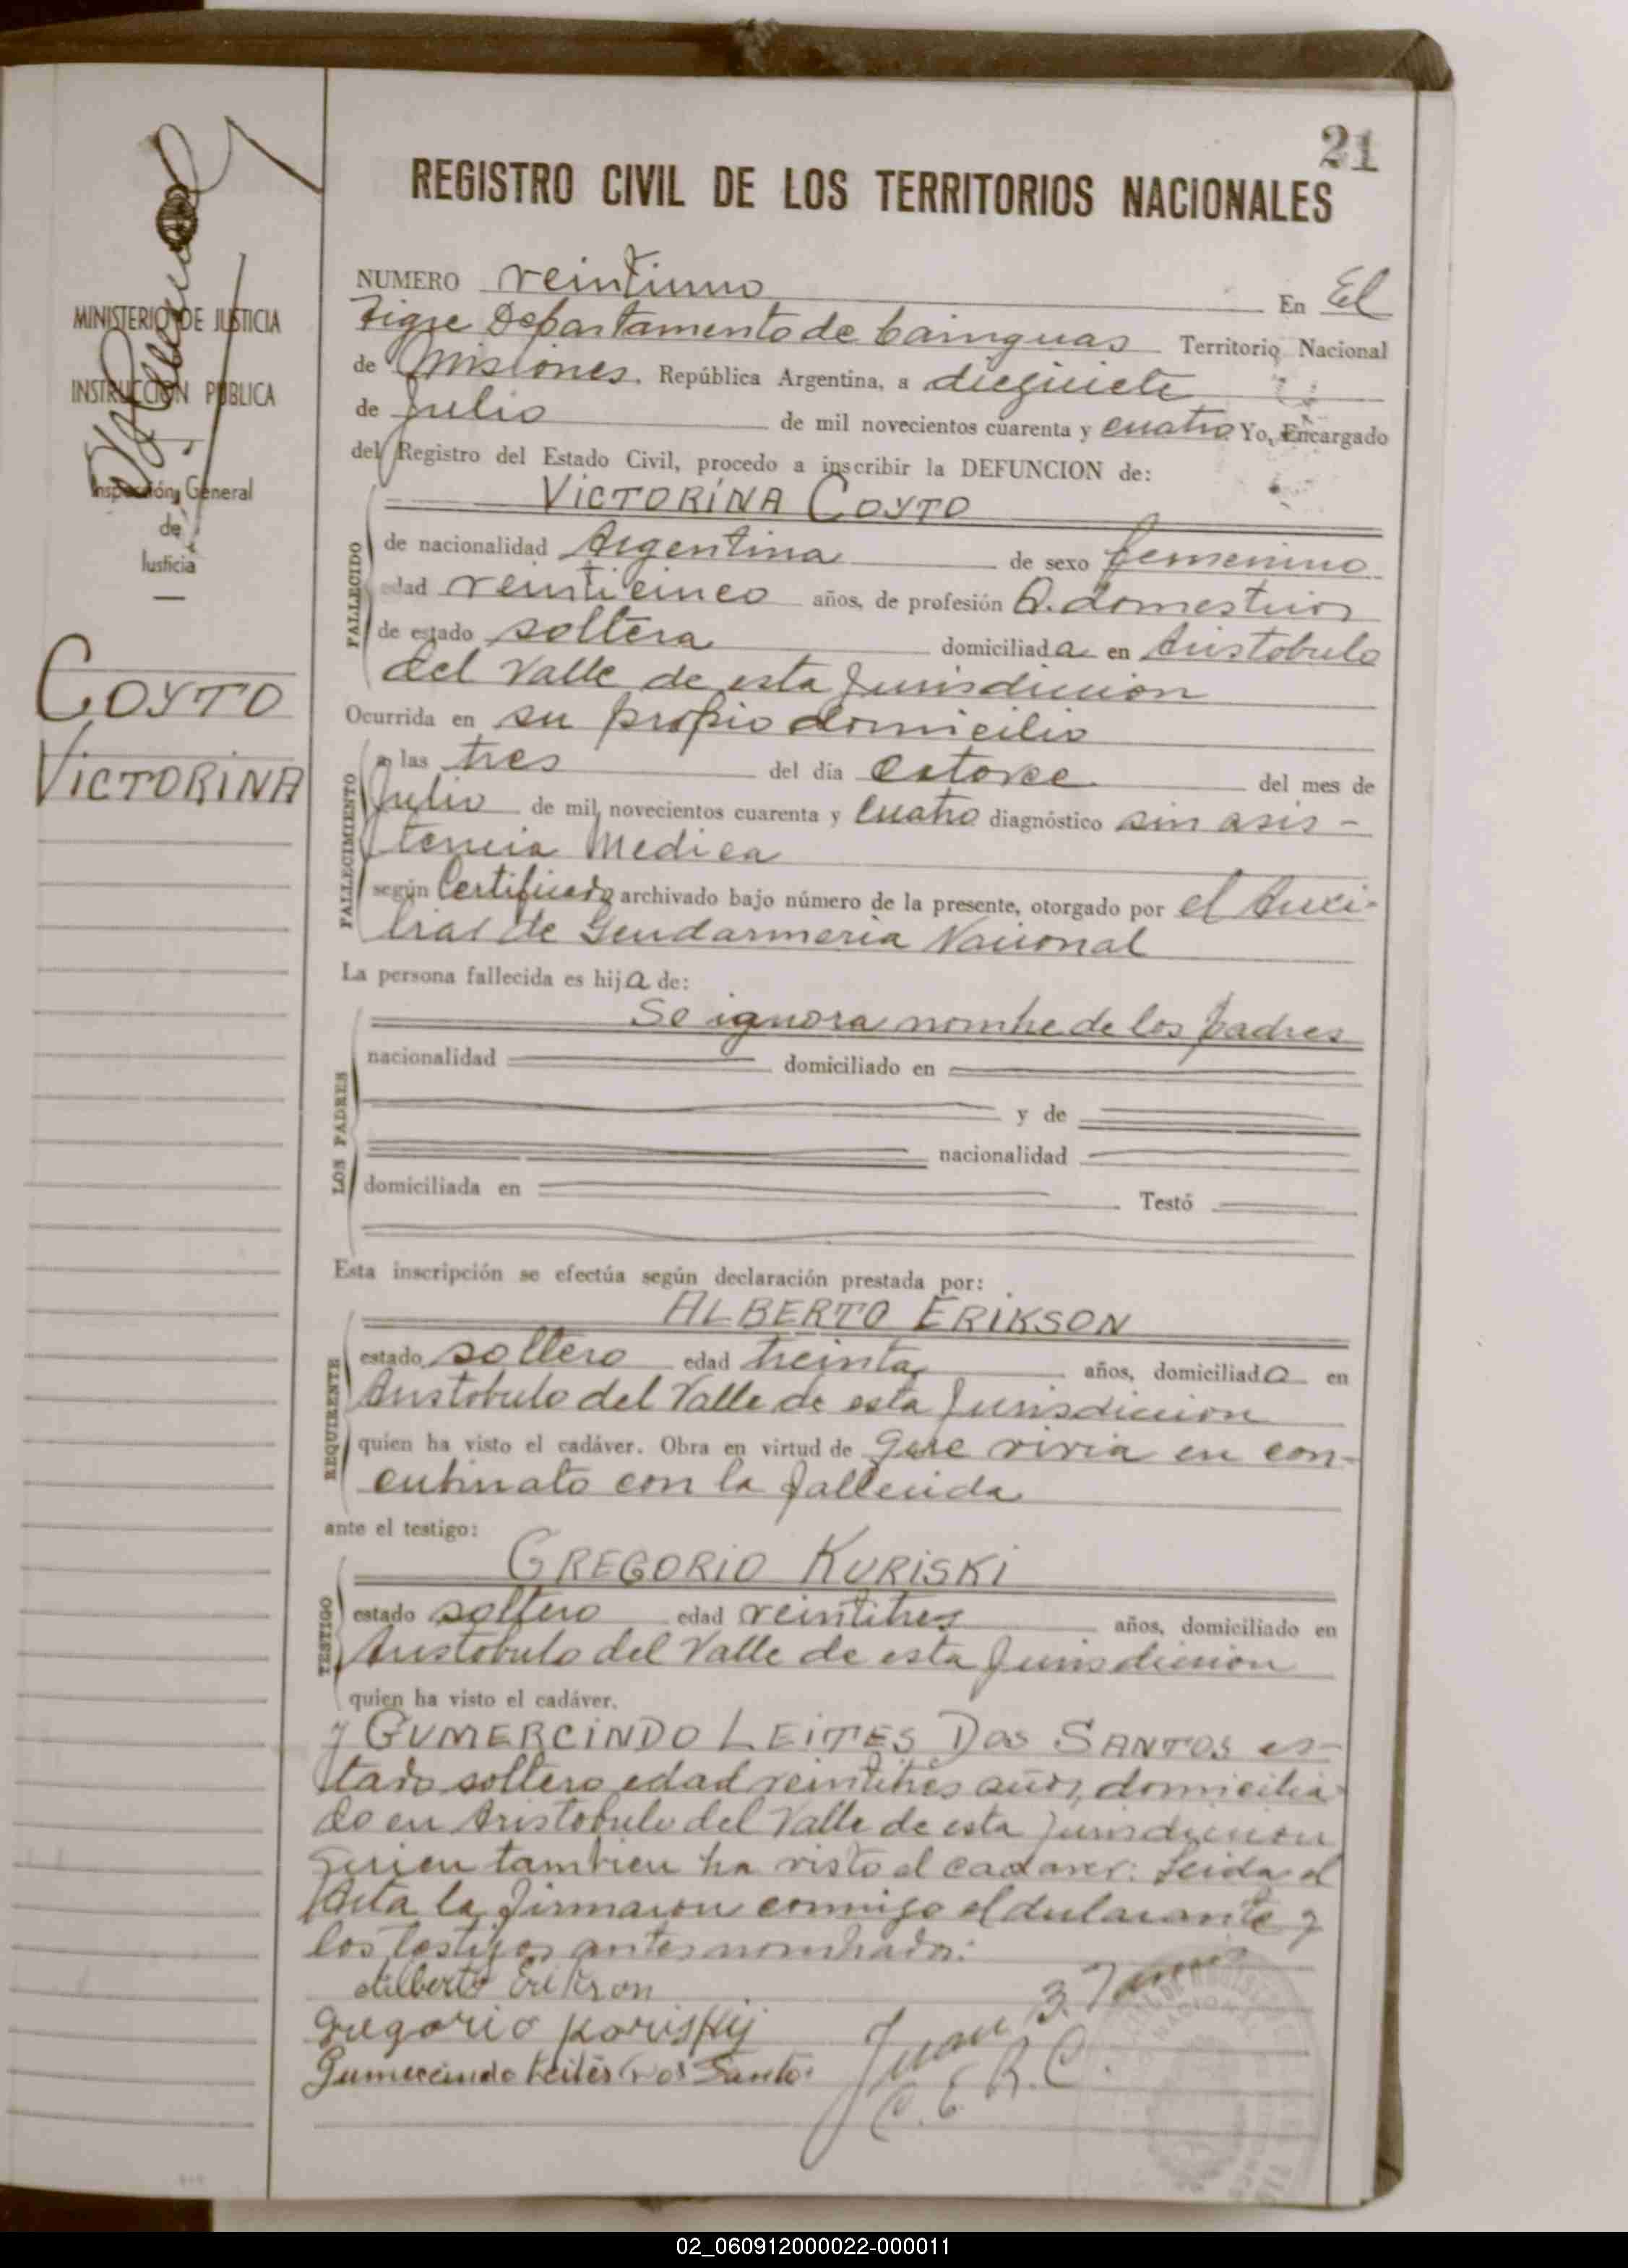 21
REGISTRO CIVIL DE LOS TERRITORIOS NACIONALES
MINISTERIO DE JUSTICIA
INSTRUCCIÓN PUBLICA
Inspección General
de
Justicia
COYTO
VICTORINA
NUMERO veintiuno En El
Tigre Departamento de Cainguas Territorio Nacional
de Misiones. República Argentina, a diesiciete
de Julio de mil novecientos cuarenta y cuatro Yo, Encargado
del Registro del Estado Civil, procedo a inscribir la DEFUNCION de:
VICTORINA COYTO
FALLECIDO
de nacionalidad Argentina de sexo femenino
edad veinticinco años, de profesión Q. domesticos
de estado soltera domiciliada en Aristobulo
del Valle de esta Jurisdiccion
Ocurrida en su propio domicilio
FALLECIMIENTO
a las tres del día catorce del mes de
Julio de mil novecientos cuarenta y cuatro diagnóstico sin asis-
tencia Medica
según Certificado archivado bajo número de la presente, otorgado por el Auxi-
liar de Gendarmeria Nacional
La persona fallecida es hija de:
Se ignora nombre de los padres
LOS PADRES
nacionalidad domiciliado en
y de
nacionalidad
domiciliada en Testó
Esta inscripción se efectúa según declaración prestada por:
ALBERTO ERIKSON
REQUIRENTE
estado soltero edad treinta años, domiciliado en
Aristobulo del Valle de esta Jurisdiccion
quien ha visto el cadáver. Obra en virtud de que vivia en con-
cubinato con la fallecida
ante el testigo:
GREGORIO KURISKI
TESTIGO
estado soltero edad veintitres años, domiciliado en
Aristobulo del Valle de esta Jurisdiccion
quien ha visto el cadáver.
y GUMERCINDO LEITES DOS SANTOS es-
tado soltero edad veintitres años, domicilia-
do en Aristobulo del Valle de esta Jurisdiccion
quien tambien ha visto el cadaver: Leida el
Acta la firmaron conmigo el declarante y
los testigos antes nombrados:
Alberto Erikson
Gregorio Koriskij
Gumercindo Leites Dos Santos
Juan B.
C. E. R. C.
02_060912000022-000011